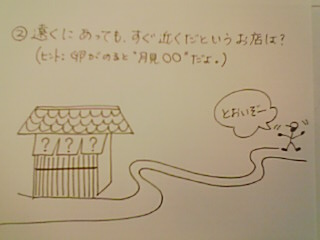 ② 遠くにあっても、すぐ近くだというお店は?
(ヒント: 卵がのると"月見〇〇"だよ。)
とおいぞー
? ? ?